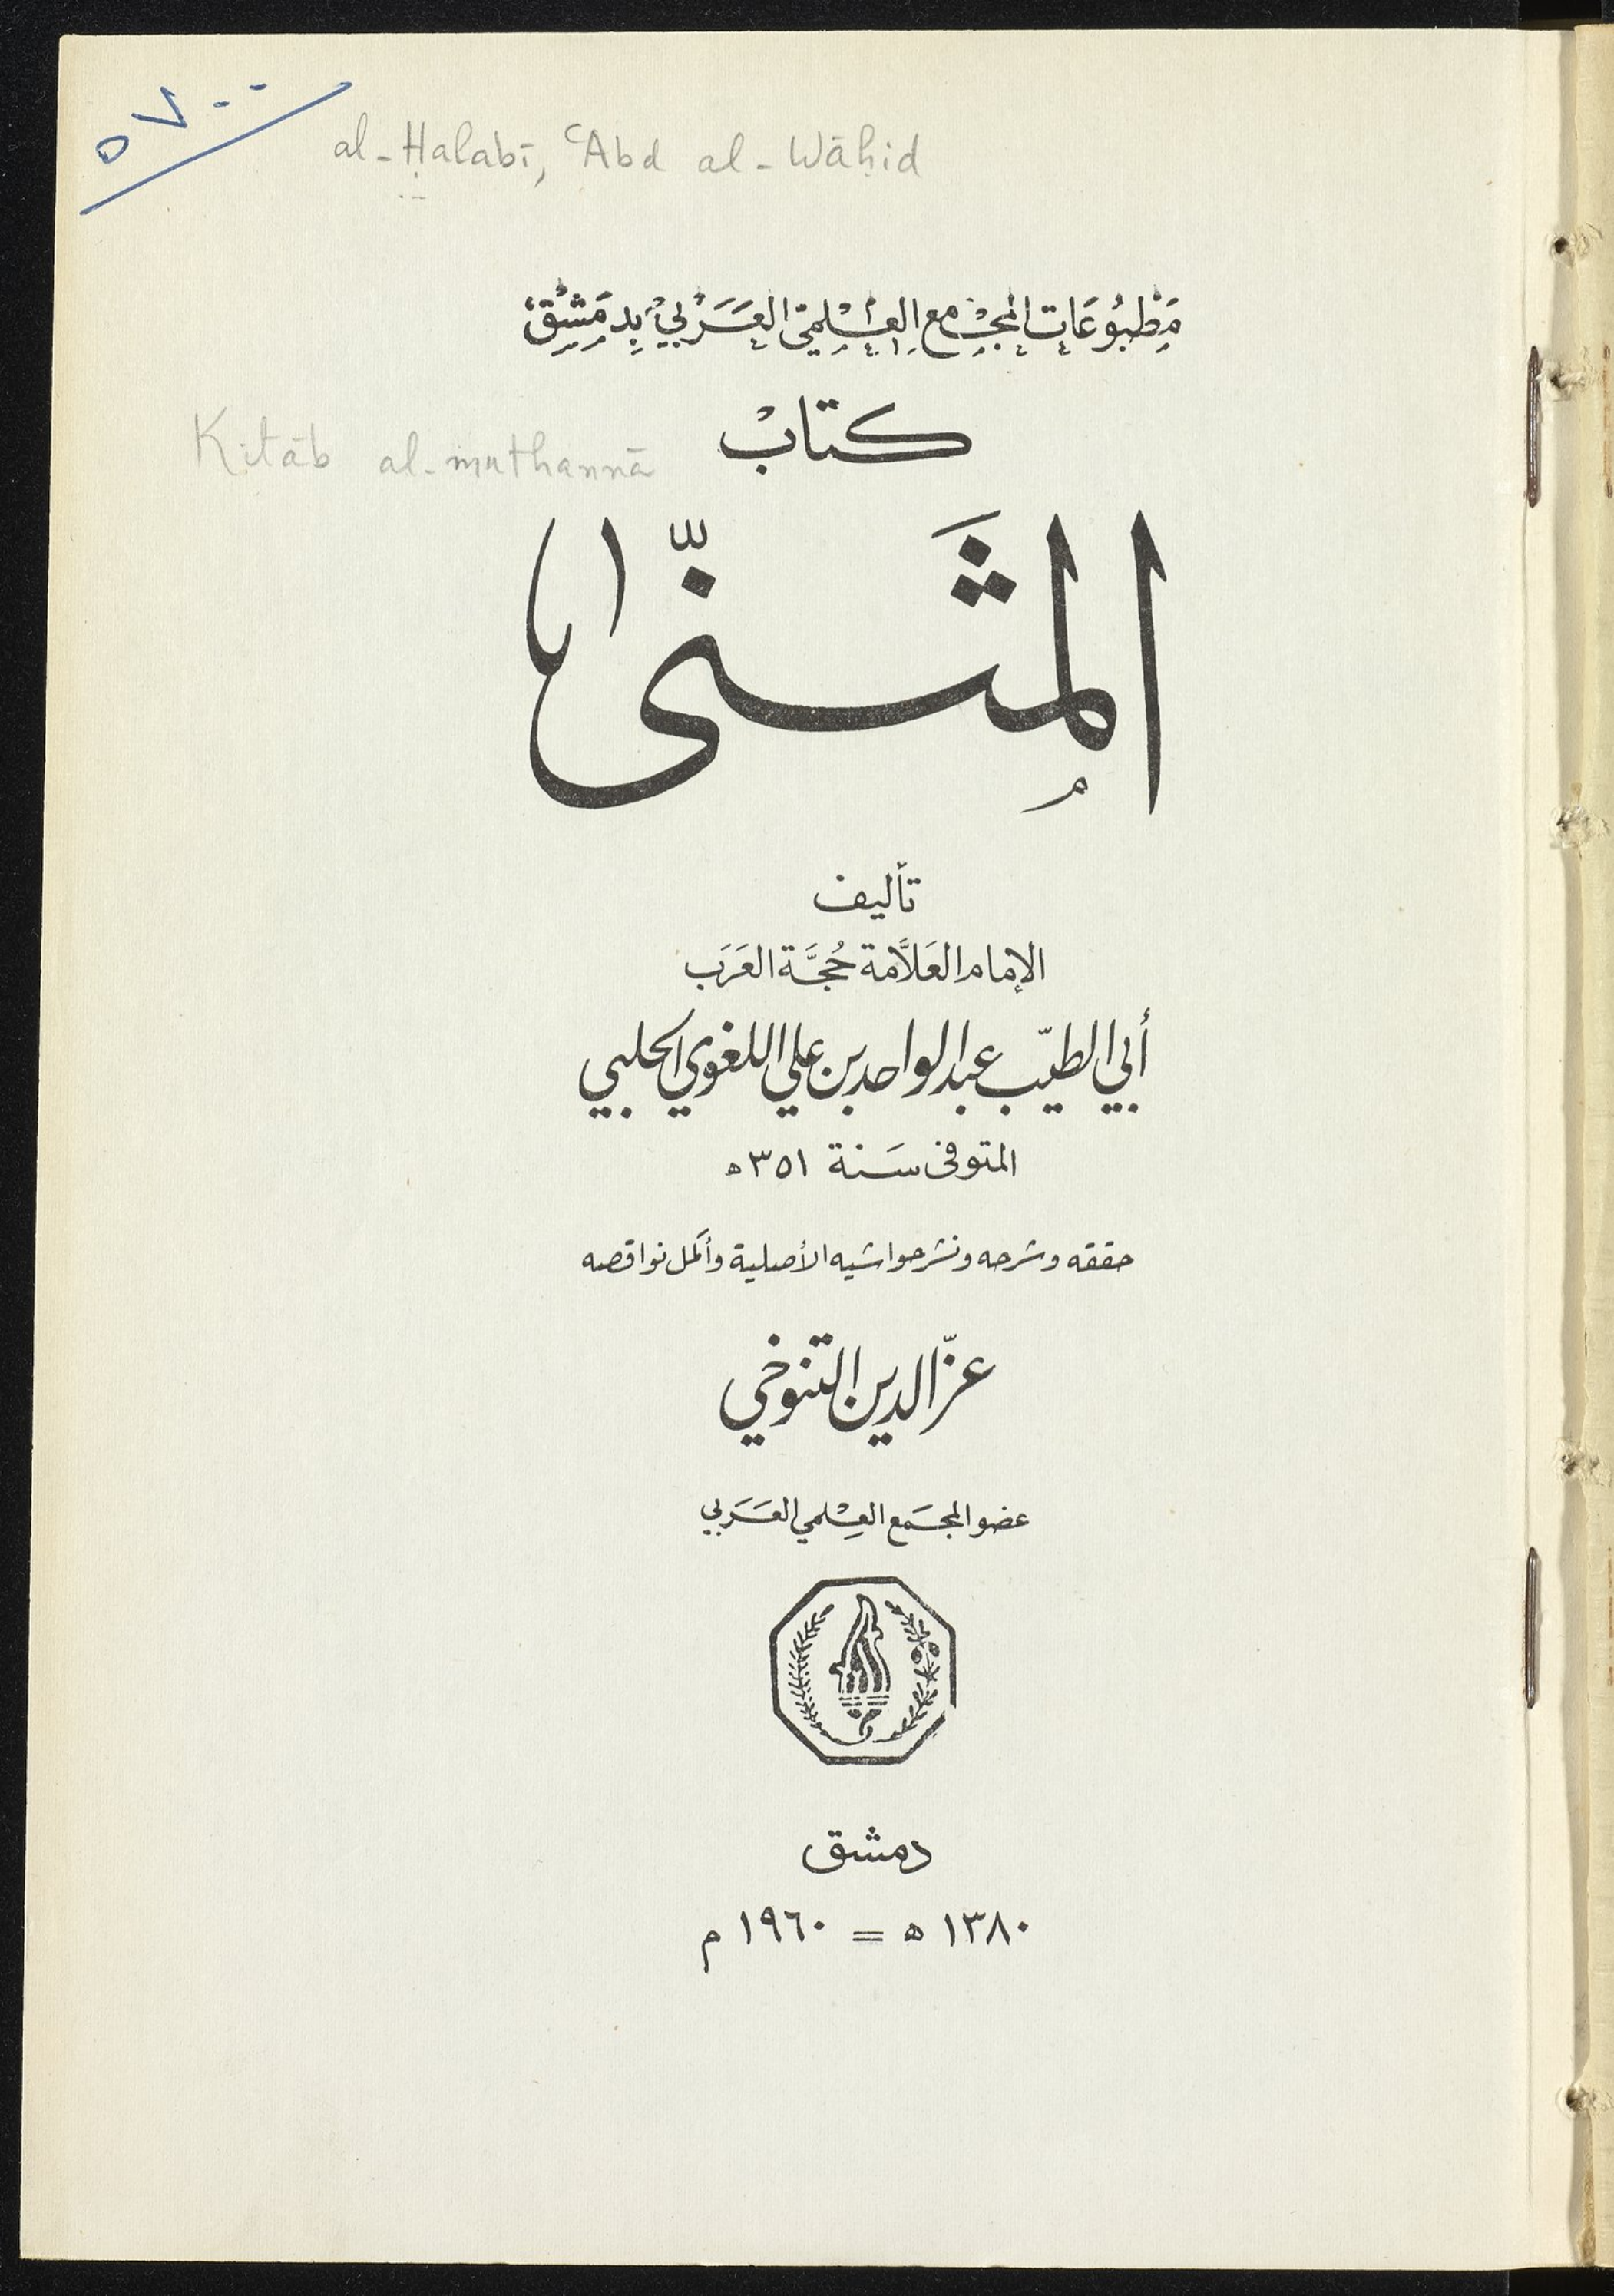 ٥٧٠٠
al-Ḥalabī, ʿAbd al-Wāḥid
مَطْبُوعَات المَجْمع العِلْميّ العَرَبيّ بِدمَشْق
Kitāb al-muthannā
كتابْ
المثَنّى
تأليف
الإمام العَلاَّمة حُجَّة العَرَب
أبي الطيّب عبد الواحد بن علي اللغوي الحلبي
المتوفى سَنة ٣٥١ ه
حققه وشرحه ونشر حواشيه الأصلية وأكمل نواقصه
عزّ الدين التنوخي
عضو المجمَع العِلْمي العَرَبي
دمشق
١٣٨٠ ه = ١٩٦٠ م